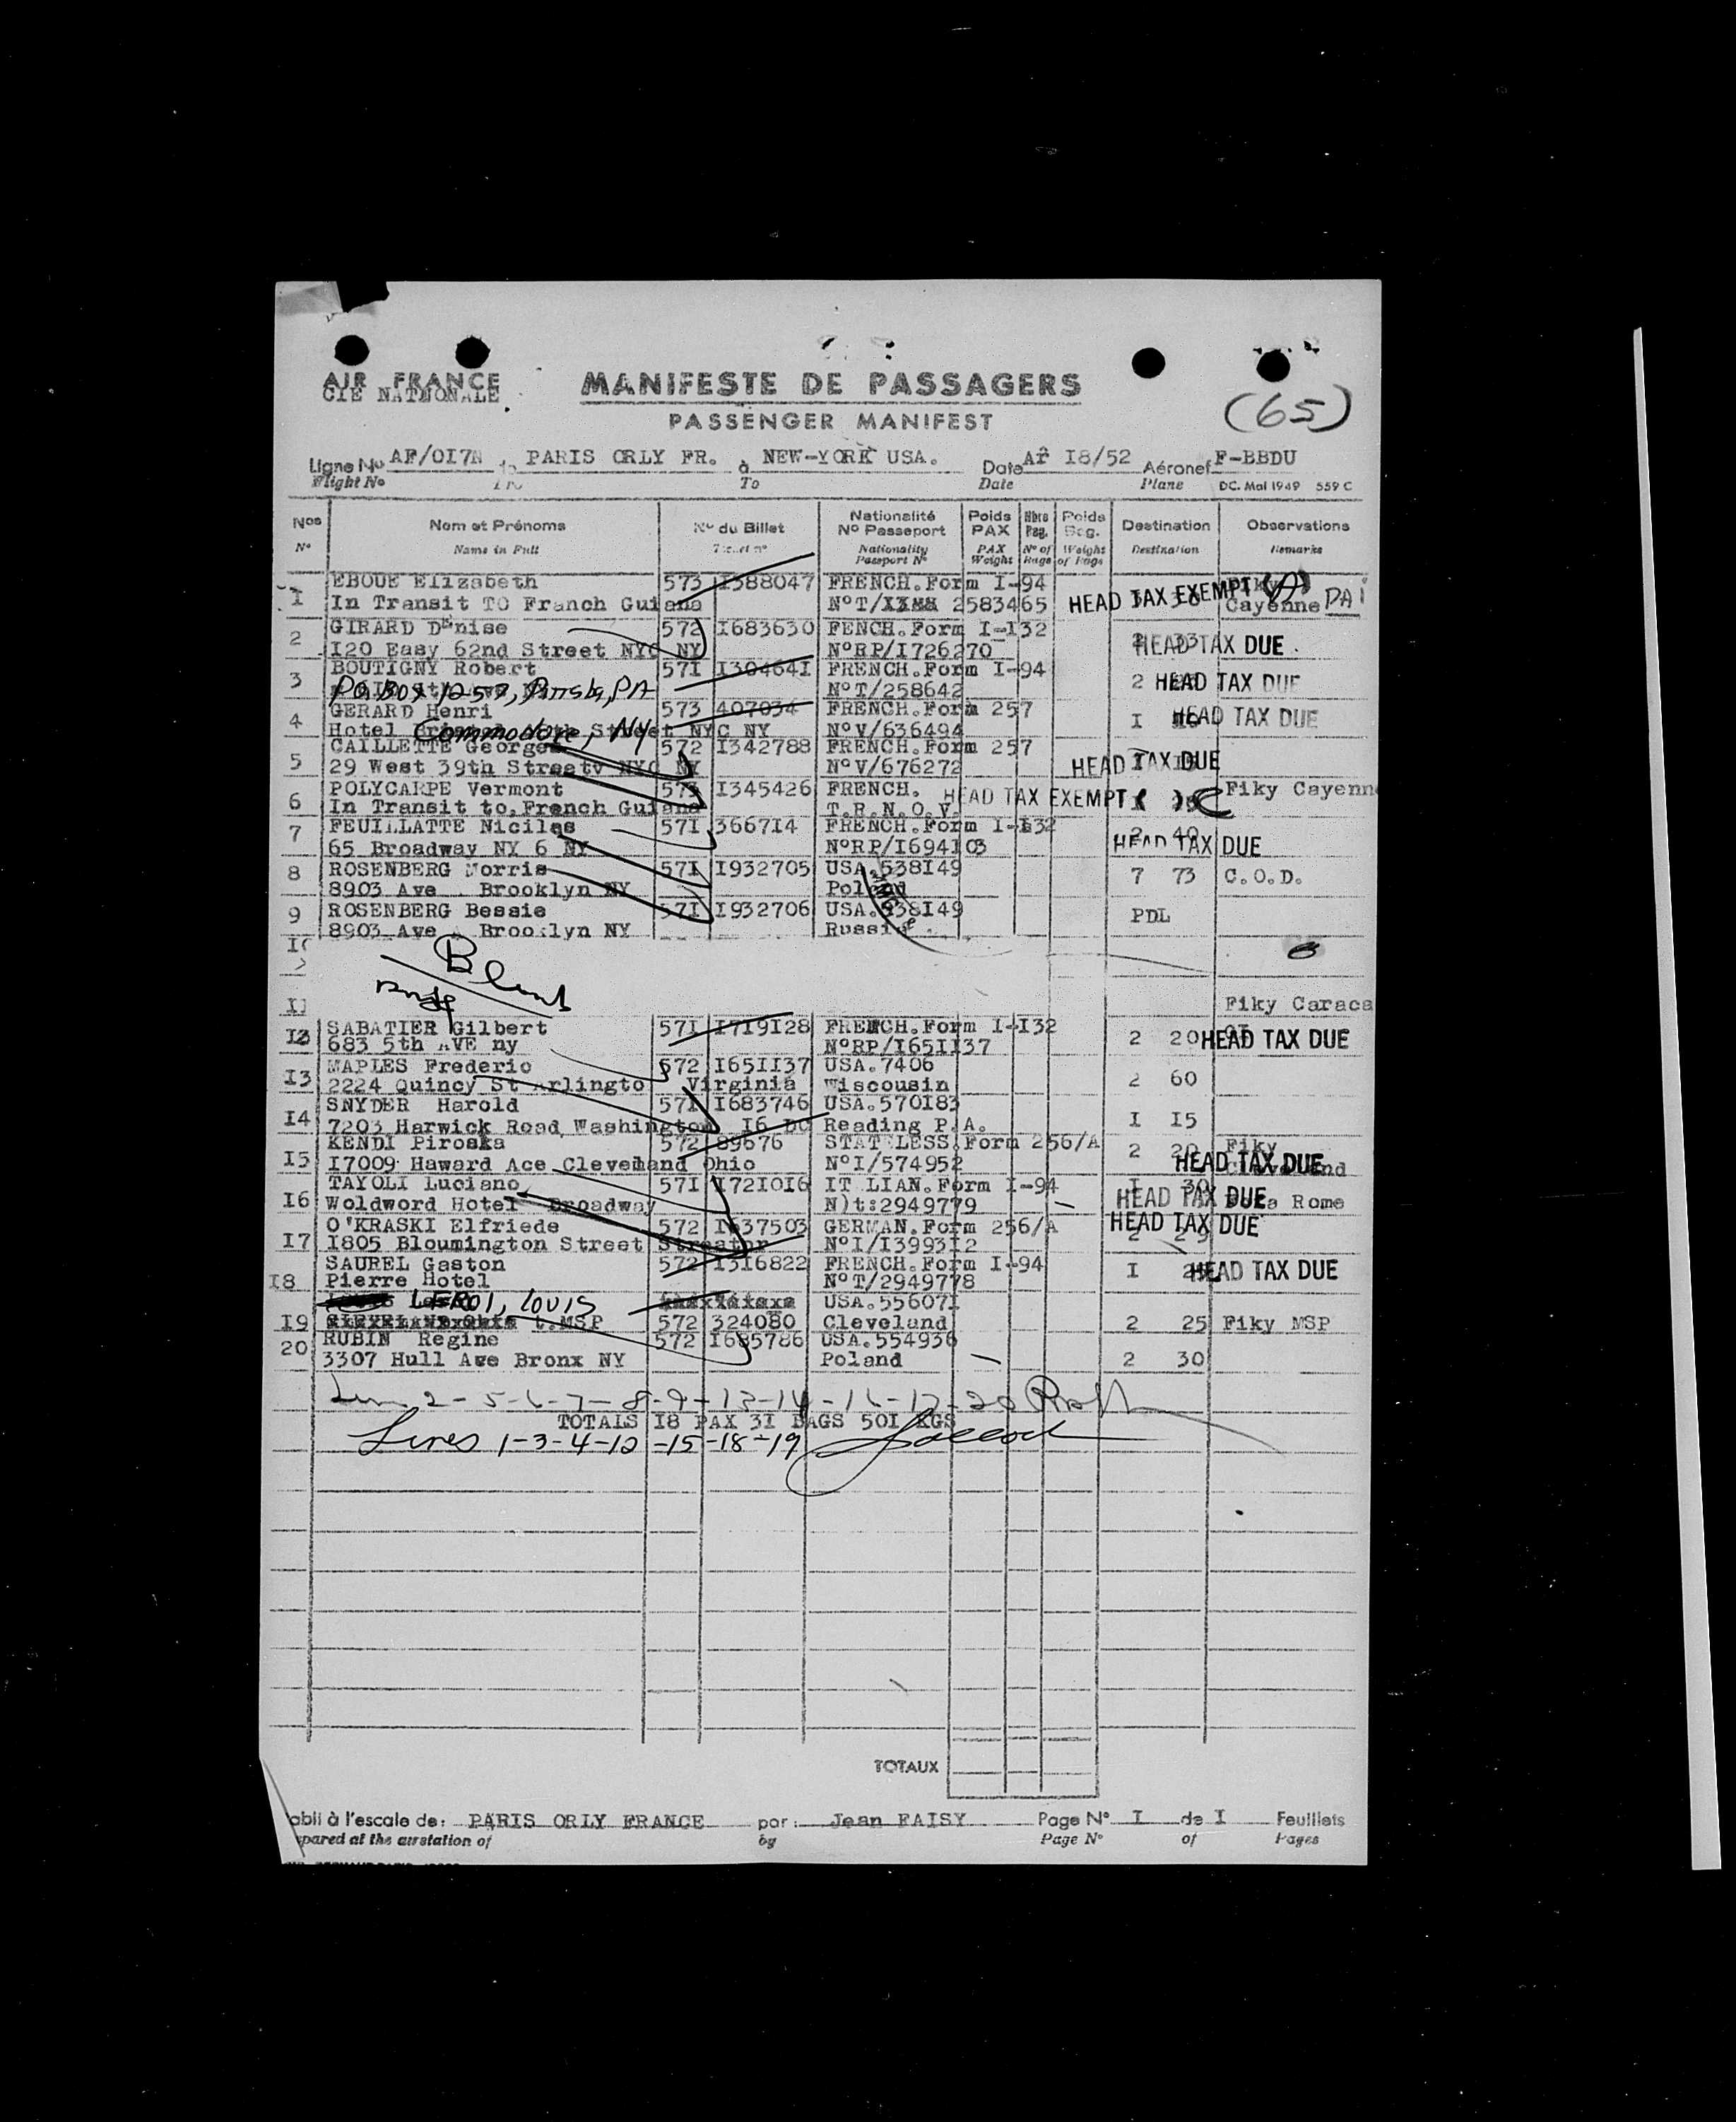 AIR FRANCE
CIE NATIONALE
MANIFESTE DE PASSAGERS
PASSENGER MANIFEST
(65)
Ligne No AF/OI7N PARIS ORLY FR. à NEW-YORK USA. Date AP I8/52 Aéronef F-BBDU
Flight No To Date Plane DC. Mai 1949 559 C
Nos Nom et Prénoms No du Billet Nationalité No Passeport Poids PAX Nbre Bag. Poids Bag. Destination Observations
No Name in Full Ticket no Nationality Passport No PAX Weight No of Bags Weight of Bags Destination Remarks
I EBOUE Elizabeth 573 I388047 FRENCH.Form I-94
In Transit TO Franch Guiana NoT/ 2583465 HEAD TAX EXEMPT (A) Cayenne
2 GIRARD DEnise 572 I683630 FENCH.Form I-I32
I20 Easy 62nd Street NYC NY NoRP/I726270 HEAD TAX DUE
3 BOUTIGNY Robert 57I I30464I FRENCH.Form I-94
PO Box 1258, PA NoT/258642 2 HEAD TAX DUE
4 GERARD Henri 573 407034 FRENCH.Form 257
Hotel Commodore, NY Street NYC NY NoV/636494 I HEAD TAX DUE
5 CAILLETTE Georges 572 I342788 FRENCH.Form 257
29 West 39th Streetv NYC NY NoV/676272 HEAD TAX DUE
6 POLYCARPE Vermont 573 I345426 FRENCH. HEAD TAX EXEMPT ( ) C Fiky Cayenn
In Transit to.French Guiana T.R.N.O.V.
7 FEUILLATTE Nicilas 57I 3667I4 FRENCH.Form I-I32 2 40
65 Broadway NY 6 NY NoRP/I694I03 HEAD TAX DUE
8 ROSENBERG Morris 57I I932705 USA.538I49 7 73 C.O.D.
8903 Ave Brooklyn NY Poland
9 ROSENBERG Bessie 57I I932706 USA.538I49 PDL
8903 Ave Brooklyn NY Russia
Blank
Fiky Caraca
SABATIER Gilbert 57I I7I9I28 FRENCH.Form I-I32
683 5th AVE ny NoRP/I65II37 2 20 HEAD TAX DUE
I3 MAPLES Frederic 572 I65II37 USA.7406
2224 Quincy St Arlingto Virginia Wiscousin 2 60
I4 SNYDER Harold 57I I683746 USA.570I83
7203 Harwick Road Washington I6 DC Reading P.A. I I5
I5 KENDI Piroska 572 89676 STATELESS.Form 256/A 2 20 Fiky
I7009 Haward Ace Clevemand Ohio NoI/574952 HEAD TAX DUE
I6 TAYOLI Luciano 57I I72I0I6 IT LIAN.Form I-94 I 30
Woldword Hotel Broadway N)t:2949779 HEAD TAX DUE Rome
I7 O'KRASKI Elfriede 572 I637503 GERMAN.Form 256/A HEAD TAX DUE
I805 Bloumington Street Streator NoI/I3993I2 2 29
I8 SAUREL Gaston 572 I3I6822 FRENCH.Form I-94
Pierre Hotel NoT/2949778 I HEAD TAX DUE
LEROI, LOUIS USA.55607I
I9 t.MSP 572 324080 Cleveland 2 25 Fiky MSP
20 RUBIN Regine 572 I685786 USA.554936
3307 Hull Ave Bronx NY Poland 2 30
2-5-6-7-8-9-13-14-16-17-20
TOTALS I8 PAX 3I BAGS 50I KGS
Lines 1-3-4-12-15-18-19
TOTAUX
abli à l'escale de: PARIS ORLY FRANCE par: Jean FAISY Page No I de I Feuillets
epared at the airstation of by Page No of Pages